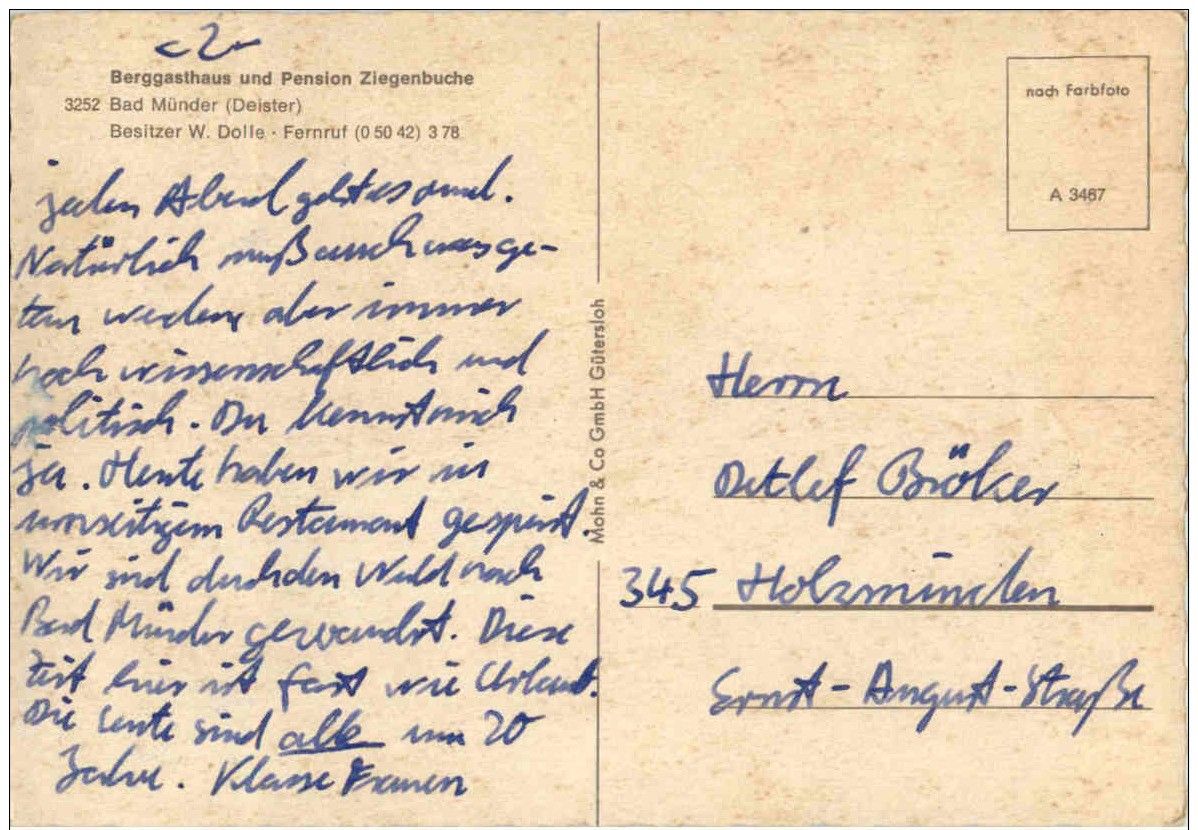 -2-
Berggasthaus und Pension Ziegenbuche
3252 Bad Münder (Deister)
Besitzer W. Dolle · Fernruf (0 50 42) 3 78
jeden Abend geht es rund.
Natürlich muß auch was ge-
tan werden, aber immer
hoch wissenschaftlich und
politisch. Du kennst mich
ja. Heute haben wir in
umseitigem Restaurant gespeist.
Wir sind durch den Wald nach
Bad Münder gewandert. Diese
Zeit hier ist fast wie Urlaub.
Die Leute sind alle um 20
Jahre. Klasse Frauen
Mohn & Co GmbH Gütersloh
nach Farbfoto
A 3467
Herrn
Detlef Bröker
345 Holzminden
Ernst-August-Straße